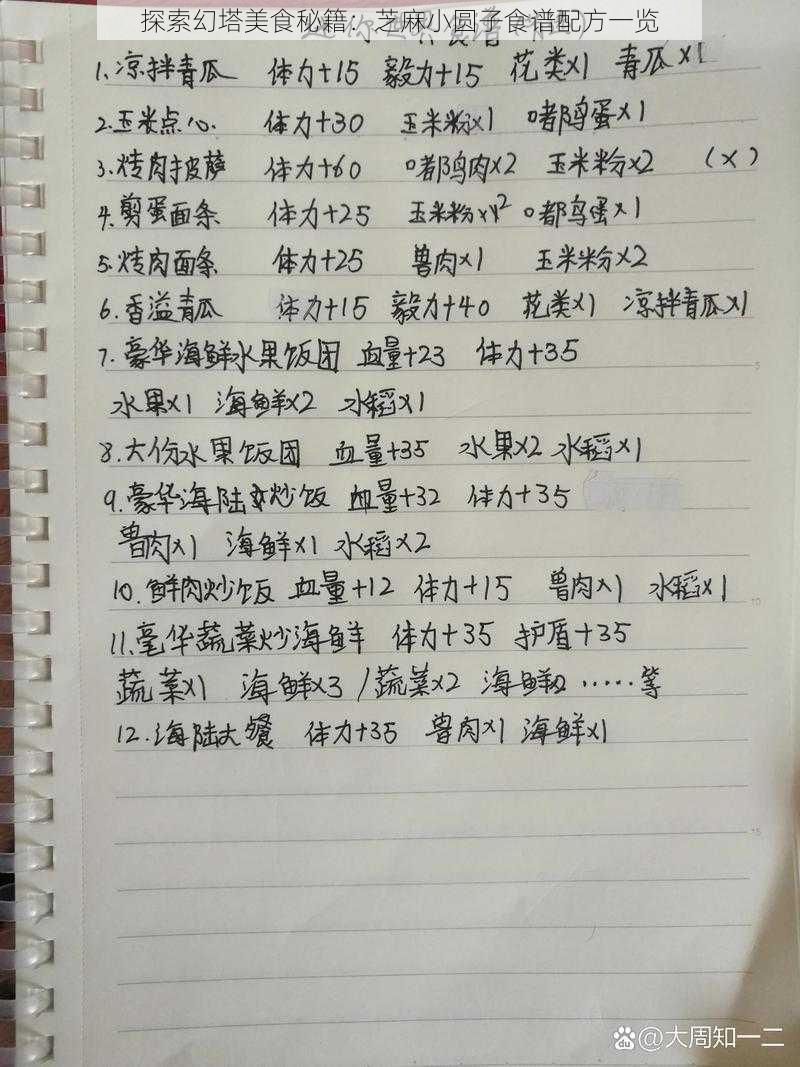 探索幻塔美食秘籍：芝麻小圆子食谱配方一览
1.凉拌青瓜 体力+15 毅力+15 花类x1 青瓜x1
2.玉米点心. 体力+30 玉米粉x1 嘟鸟蛋x1
3.烤肉披萨 体力+60 嘟鸟肉x2 玉米粉x2 (x)
4.剪蛋面条 体力+25 玉米粉x2 嘟鸟蛋x1
5.烤肉面条 体力+25 兽肉x1 玉米粉x2
6.香溢青瓜 体力+15 毅力+40 花类x1 凉拌青瓜x1
7.豪华海鲜水果饭团 血量+23 体力+35
水果x1 海鲜x2 水稻x1
8.大份水果饭团 血量+35 水果x2 水稻x1
9.豪华海陆炒饭 血量+32 体力+35
兽肉x1 海鲜x1 水稻x2
10.鲜肉炒饭 血量+12 体力+15 兽肉x1 水稻x1
11.毫华蔬菜炒海鲜 体力+35 护盾+35
蔬菜x1 海鲜x3 /蔬菜x2 海鲜 ······等
12.海陆大餐 体力+35 兽肉x1 海鲜x1
Bai du @大周知一二